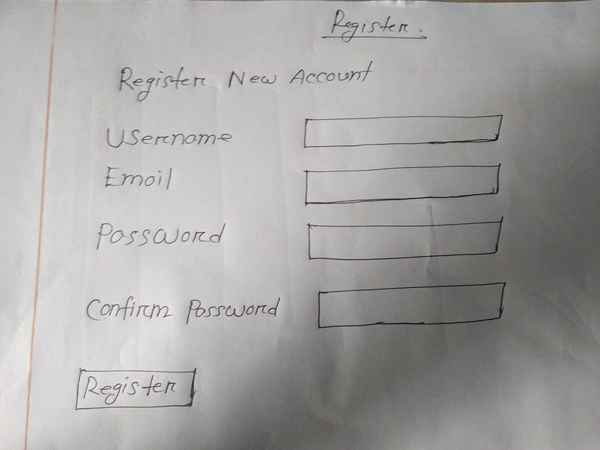 Register.
Register New Account
Username
Email
Password
Confirm Password
Register